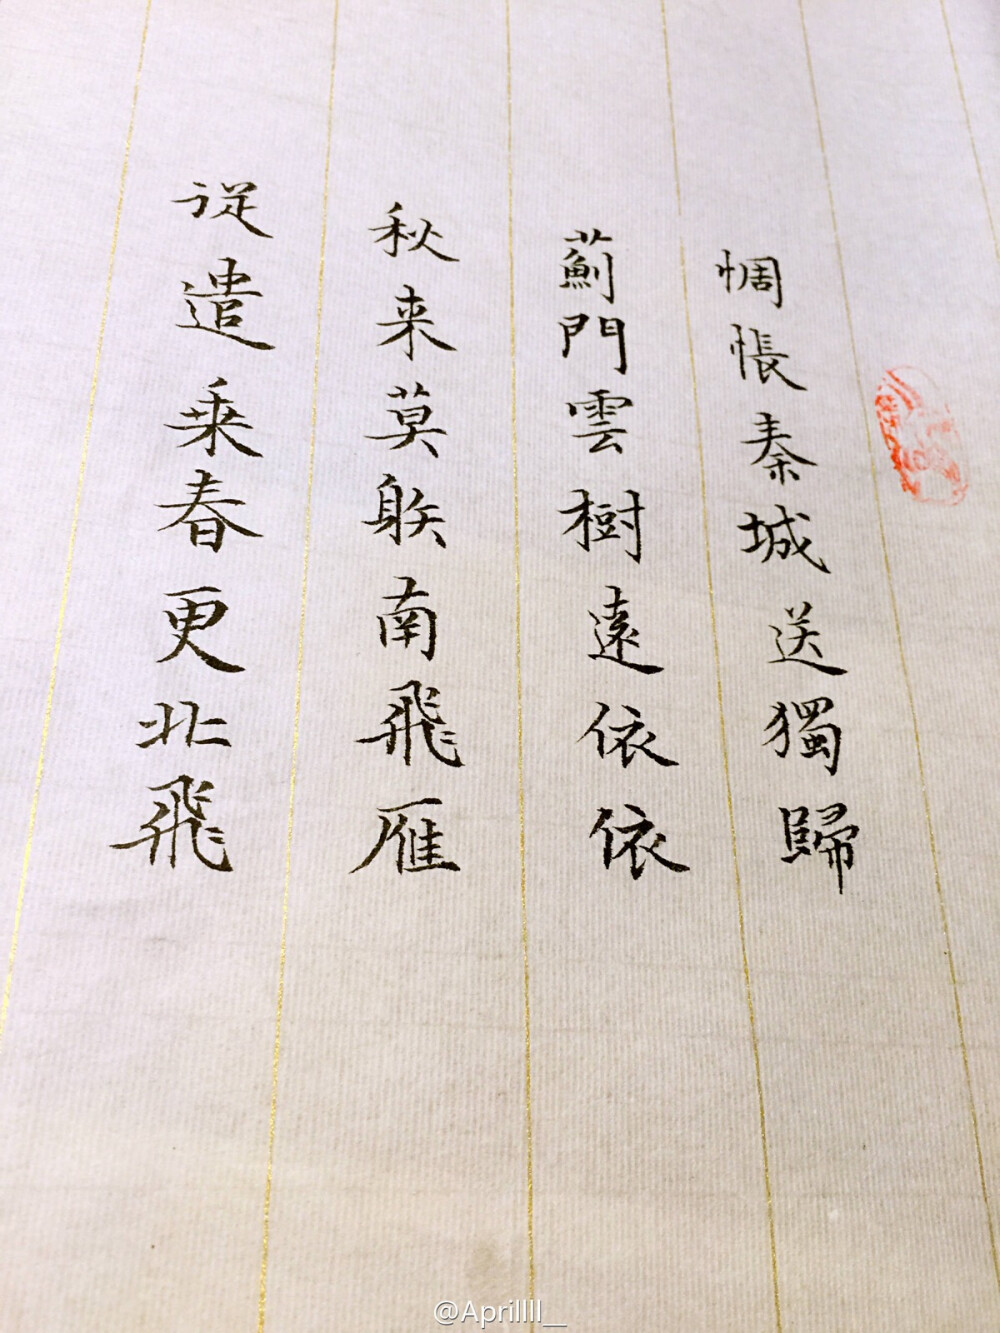 惆悵秦城送獨歸
薊門雲樹遠依依
秋来莫躲南飛雁
従遣乗春更北飛
@Aprillll__